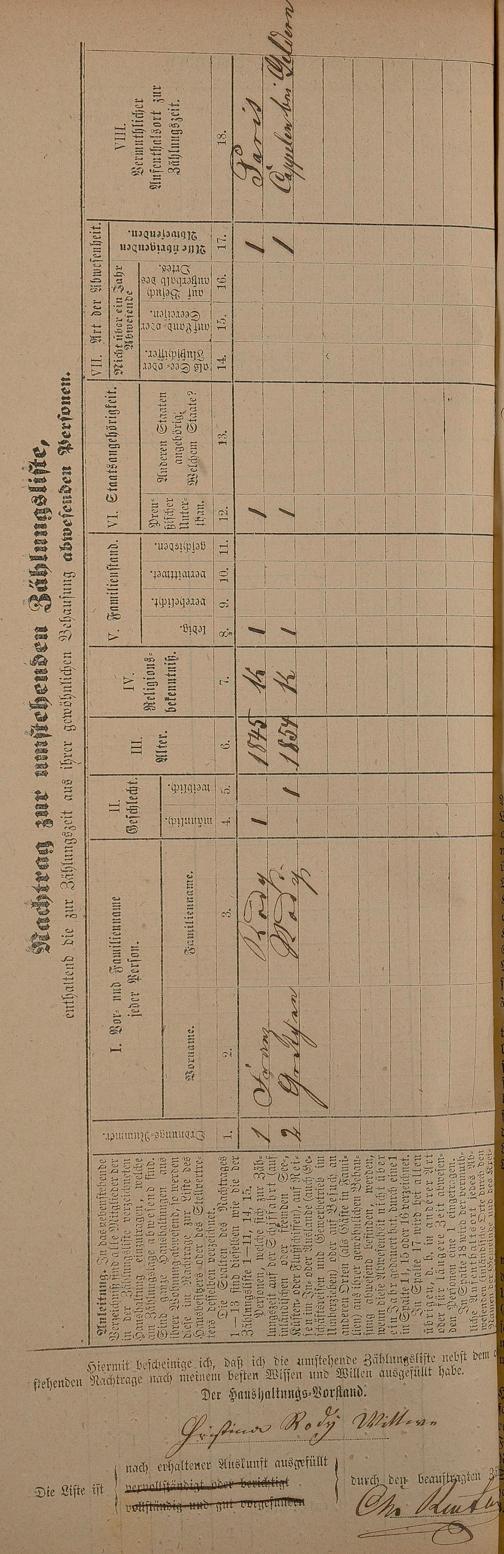 Nachtrag zur umstehenden Zählungsliste,
enthaltend die zur Zählungszeit aus ihrer gewöhnlichen Behausung abwesenden Personen.
Anleitung. In das nebenstehende
Verzeichniß sind alle Mitglieder der
in der Zählungsliste verzeichneten
Haushaltung einzutragen, welche
am Zählungstage abwesend sind.
Sind ganze Haushaltungen aus
ihrer Wohnung abwesend, so werden
diese im Nachtrage zur Liste des
Hausbesitzers oder des Stellvertre-
ters desselben verzeichnet.
Die Spalten des Nachtrages
1—13 sind dieselben wie die der
Zählungsliste 1—11, 14, 15.
Personen, welche sich zur Zäh-
lungszeit auf der Schifffahrt (auf
inländischen oder fremden See-,
Küsten- oder Flußschiffen), auf Rei-
sen In- oder Auslande (auch Ge-
schäftsreisen und Gewerbebetrieb im
Umherziehen oder auf Besuch an
anderen Orten (als Gäste in Fami-
lien) aus ihrer gewöhnlichen Behau-
sung abwesend befinden, werden,
wenn diese Abwesenheit nicht über
ein Jahr gedauert hat, mit einer 1
in Spalte 14, 15 oder 16 verzeichnet.
In Spalte 17 wird bei allen
übrigen, d. h. in anderer Art
oder für längere Zeit abwesen-
den Personen eine 1 eingetragen.
In Spalte 18 wird der muth-
maßliche Aufenthaltsort jedes Ab-
wesenden
Ordnungs-Nummer.
I. Vor- und Familienname
jeder Person.
Vorname.
Familienname.
II.
Geschlecht.
männlich.
weiblich.
III.
Alter.
IV.
Religions-
bekenntniß.
V. Familienstand.
ledig.
verehelicht.
verwittwet.
geschieden.
VI. Staatsangehörigkeit.
Preu-
ßischer
Unter-
than.
Anderen Staaten
angehörig.
Welchem Staate?
VII. Art der Abwesenheit.
Nicht über ein Jahr
Abwesende
als See- oder
Flußschiffer.
auf Land- oder
Seereisen.
auf Besuch
außerhalb des
Ortes.
Alle übrigen
Abwesenden.
VIII.
Vermuthlicher
Aufenthaltsort zur
Zählungszeit.
1. 2. 3. 4. 5. 6. 7. 8. 9. 10. 11. 12. 13. 14. 15. 16. 17. 18.
1 Franz Rody 1 1845 K 1 1 1 Paris
2 Gretchen Rody 1 1854 K 1 1 1 Cappelen bei Geldern
Hiermit bescheinige ich, daß ich die umstehende Zählungsliste nebst dem
stehenden Nachtrage nach meinem besten Wissen und Willen ausgefüllt habe.
Der Haushaltungs-Vorstand:
Christina Rody Wittwe
Die Liste ist
nach erhaltener Auskunft ausgefüllt
vervollständigt oder berichtigt
vollständig und gut vorgefunden
durch den beauftragten